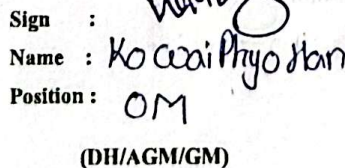 Sign :
Name : Ko Wai Phyo Han
Position : OM
(DH/AGM/GM)